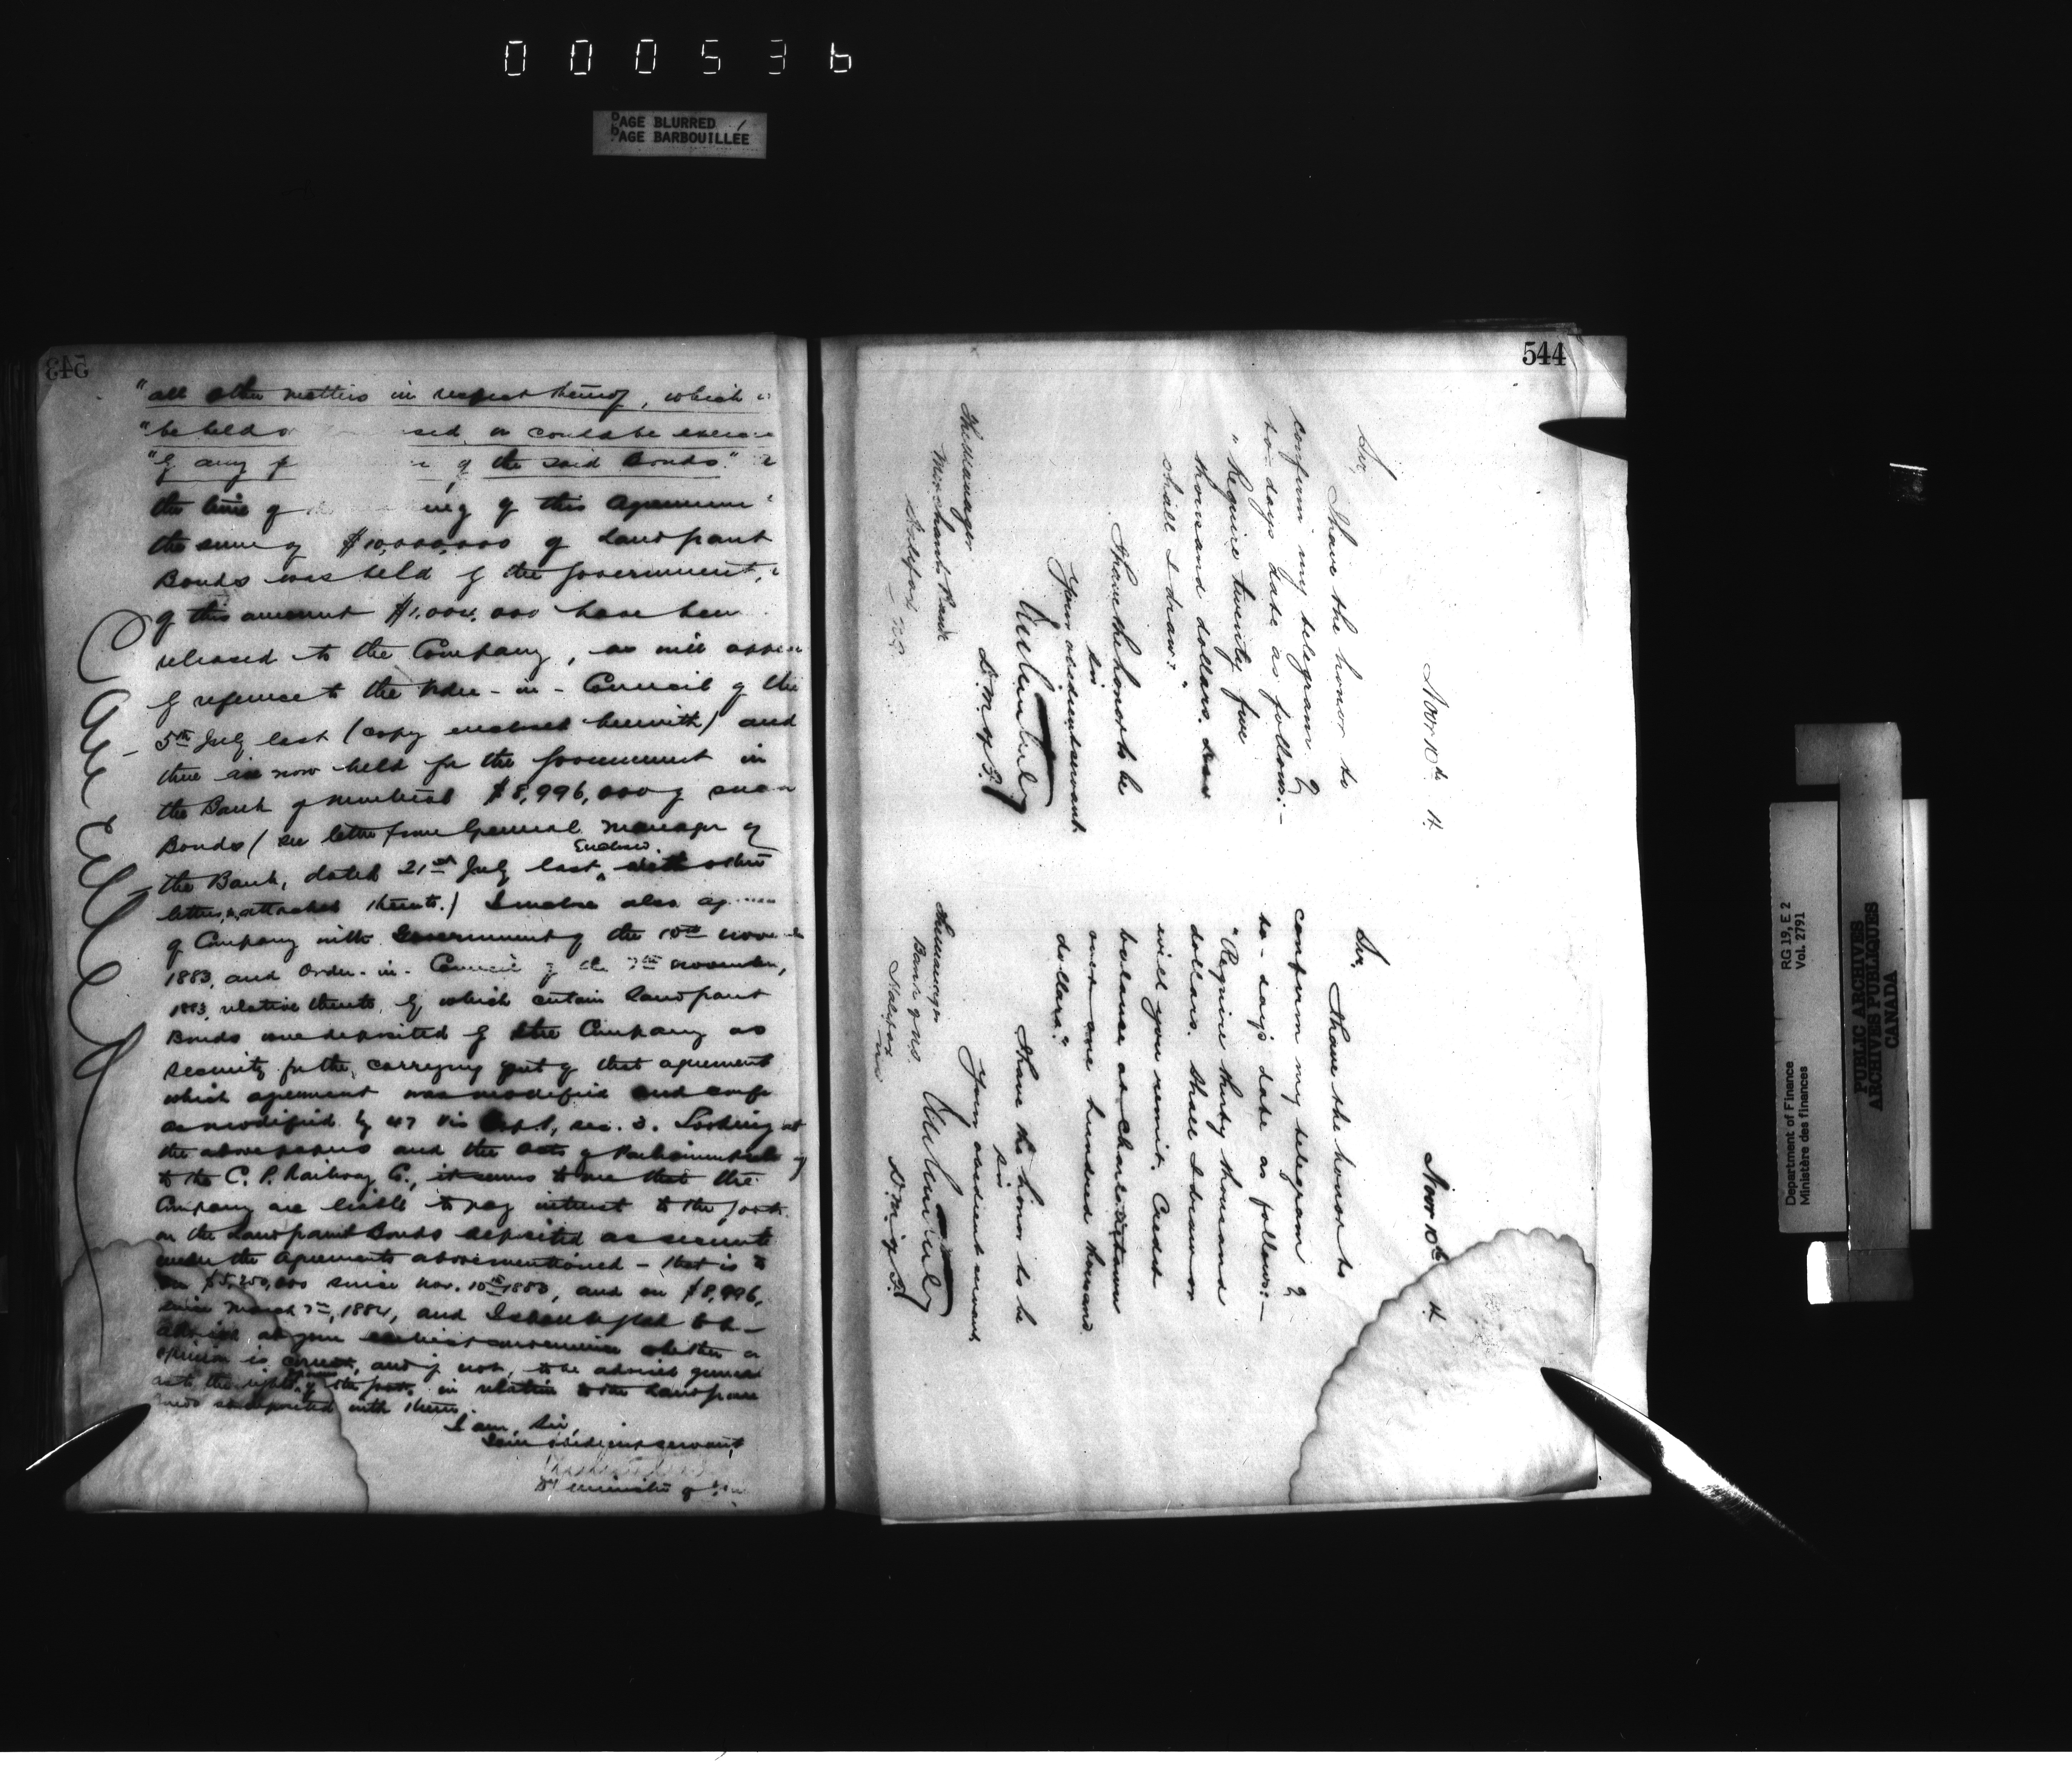 000536
PAGE BLURRED
PAGE BARBOUILLÉE
543
"all other matters in respect thereof, which
"be held or sed, or could be exerci
"by any of the said Bonds"
the time of ing of this Agreement
the sum of $10,000,000 of Land grant
Bonds was held by the Government,
of this amount $1,004,000 have been
released to the Company, as will appear
by reference to the Order-in-Council of the
5th July last (copy enclosed herewith) and
there are now held for the Government in
the Bank of Montreal $8,996,000 of such
Bonds (see letter from General Manager of
the Bank, dated 21st July last, Enclosed. other
letters attached thereto.) I enclose also ag
of Company with Government of the 10th Novem
1883, and Order-in-Council of the 7th November,
1883, relative thereto, by which certain Land grant
Bonds were deposited by the Company as
security for the carrying out of that agreement
which agreement was modified and
as modified by 47 Vic Cap. 1, sec. 3. Looking at
the above papers and the Acts of Parliament
to the C. P. Railway Co., it seems to me that the
Company are liable to pay interest to the Govt.
on the Land grant Bonds deposited as security
under the Agreements abovementioned – that is
on $5,250,000 since Nov. 10th 1883, and on $8,996,
since March 7th, 1884, and I should be glad to be
advised at your earliest convenience whether
opinion is correct, and if not, to be advised
as to the rights of the Govt. in relation to the Land grant
Bonds so deposited with them.
I am, Sir,
Your obedient servant,
Dy Minister of
544
Nov 10th 4
Sir,
I have the honor to
confirm my telegram of
to-day's date as follows:–
"Require twenty five
thousand dollars.
shall I draw?"
I have the honor to be
Sir
Your obedient servant
D.M. of F.
The Manager
Merchants Bank
Halifax
N.S.
Nov 10th 4
Sir,
I have the honor to
confirm my telegram of
to-day's date as follows:–
"Require thirty thousand
dollars. Shall I draw or
will you remit. Credit
balance at Charlottetown
over one hundred thousand
dollars."
I have the honor to be
Sir
Your obedient servant,
D.M. of F.
The Manager
Bank of N.S.
Halifax
N.S.
RG 19, E 2
Vol. 2791
Department of Finance
Ministère des finances
PUBLIC ARCHIVES
ARCHIVES PUBLIQUES
CANADA